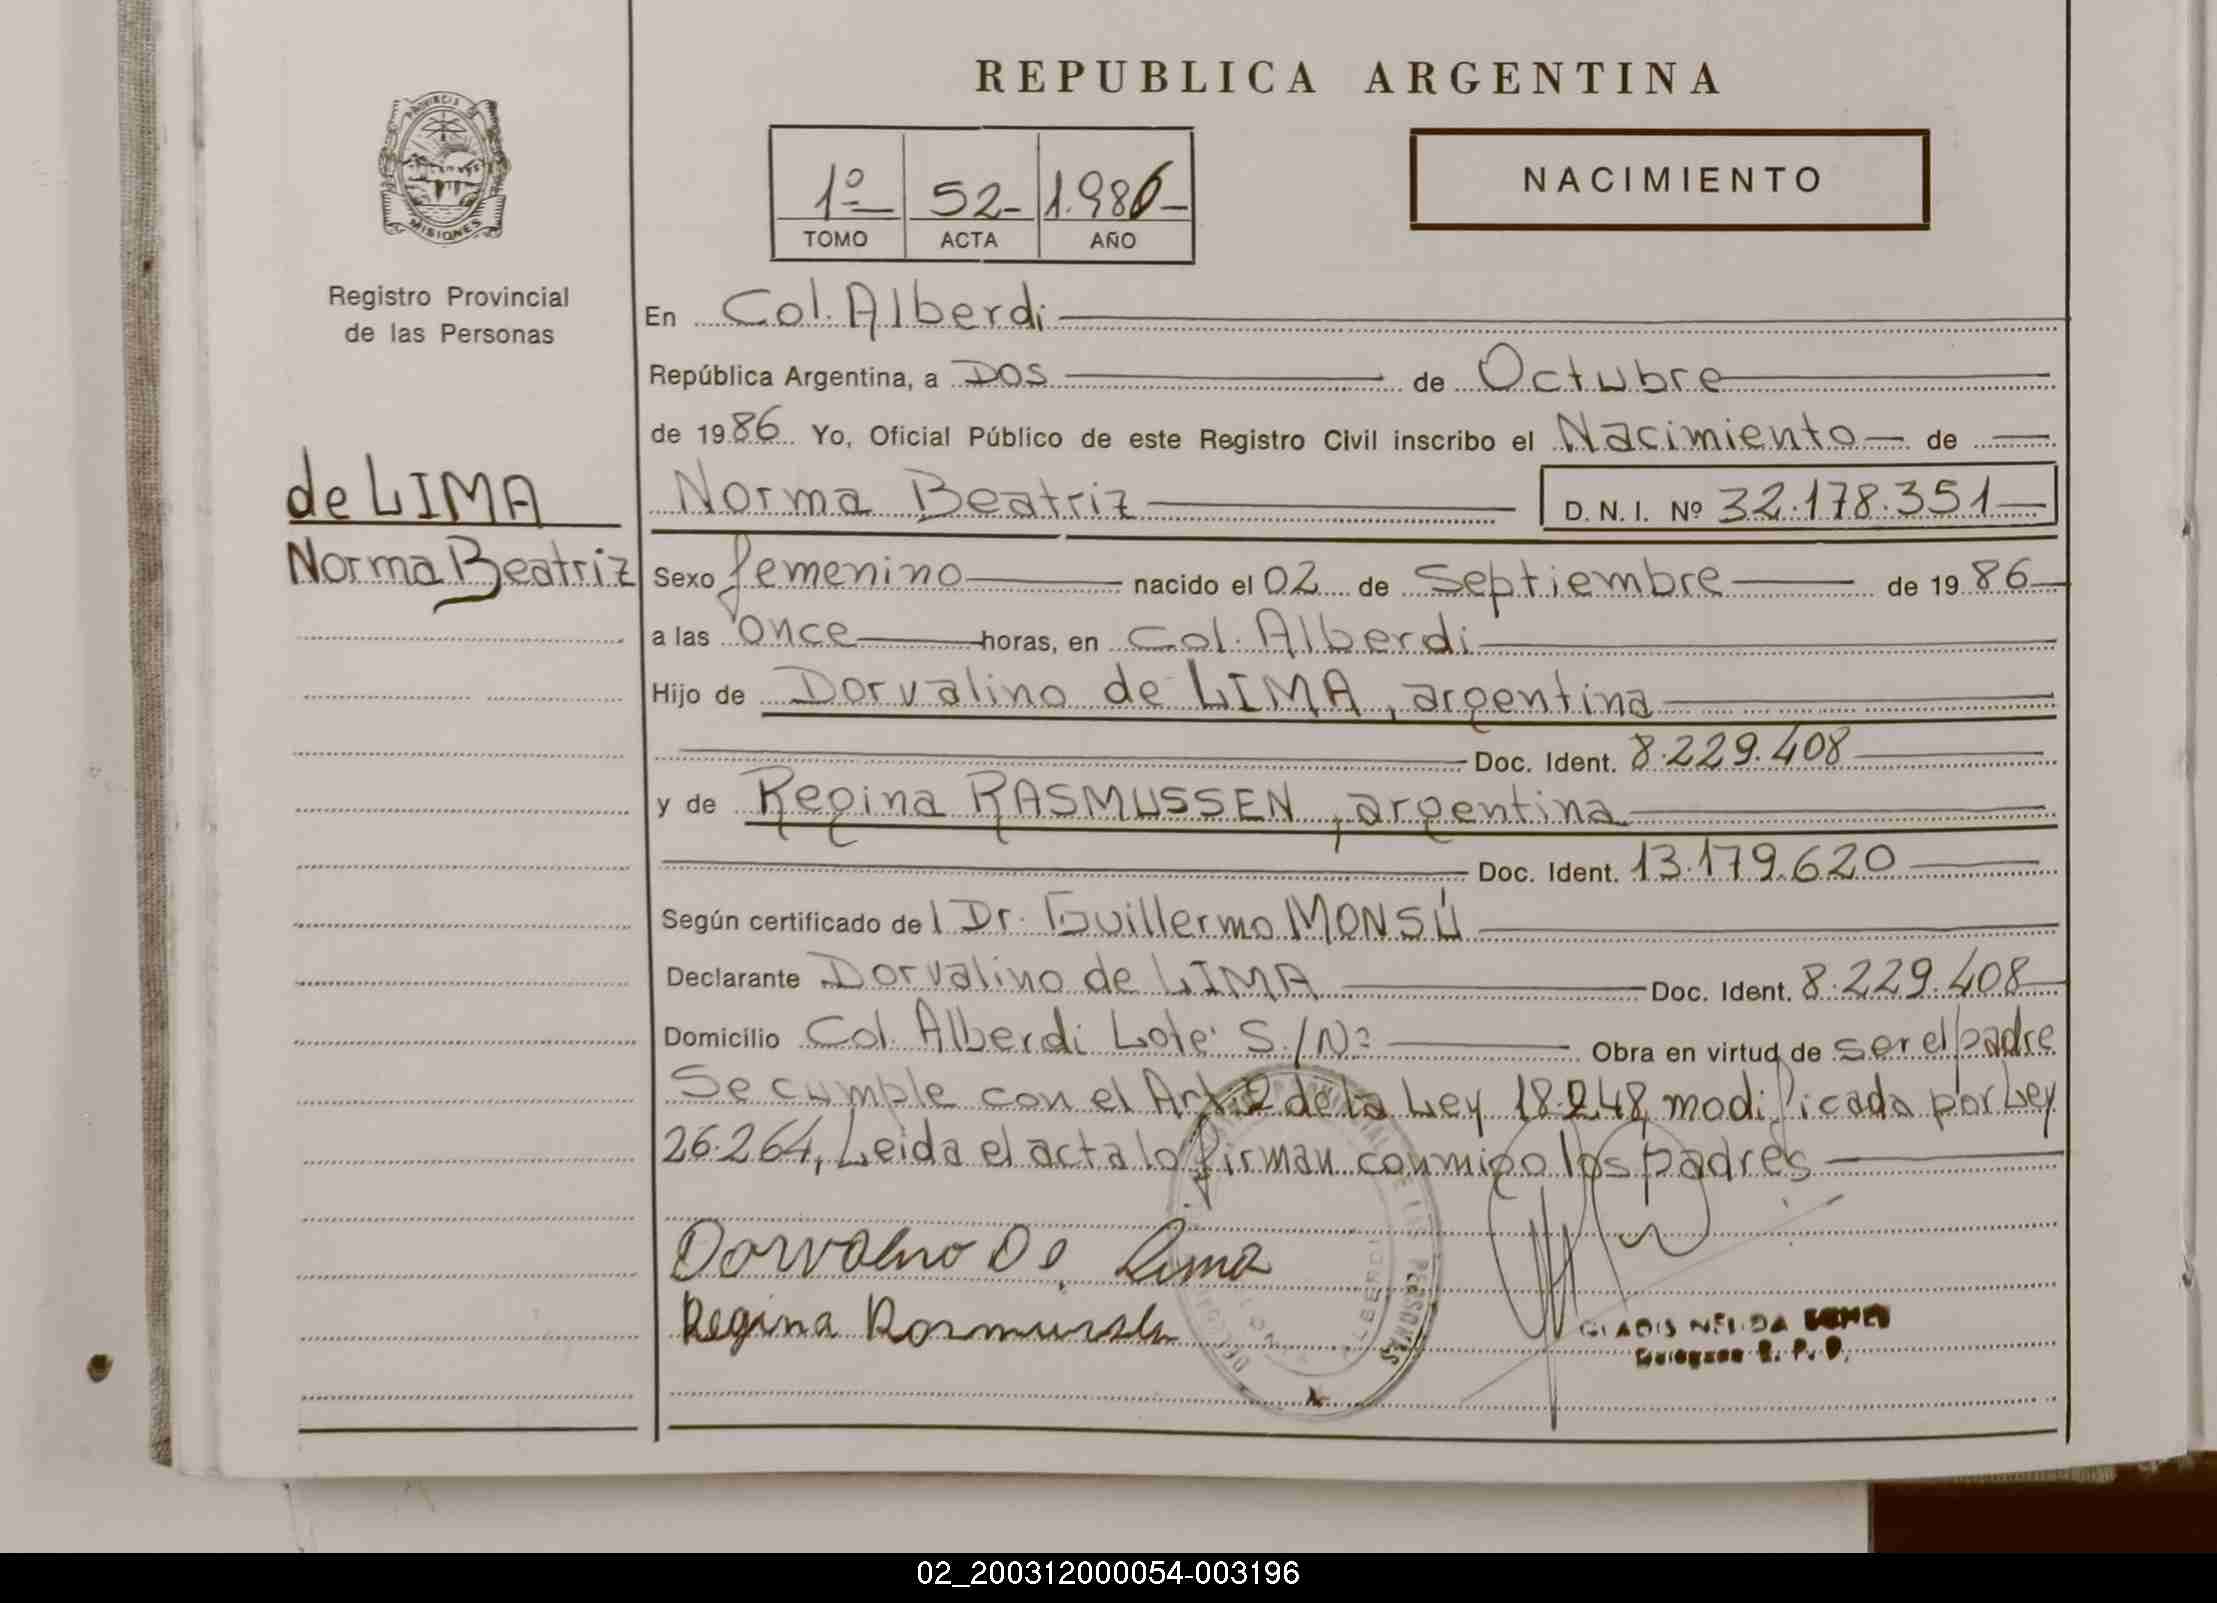 REPUBLICA ARGENTINA
PROVINCIA DE
MISIONES
Registro Provincial
de las Personas
1º 52- 1.986-
TOMO ACTA AÑO
NACIMIENTO
de LIMA
Norma Beatriz
En Col. Alberdi
República Argentina, a Dos de Octubre
de 1986 Yo, Oficial Público de este Registro Civil inscribo el Nacimiento de
Norma Beatriz D. N. I. Nº 32.178.351
Sexo femenino nacido el 02 de Septiembre de 1986
a las once horas, en Col. Alberdi
Hijo de Dorvalino de LIMA, argentina
Doc. Ident. 8.229.408
y de Regina RASMUSSEN, argentina
Doc. Ident. 13.179.620
Según certificado del Dr. Guillermo MONSÚ
Declarante Dorvalino de LIMA Doc. Ident. 8.229.408
Domicilio Col. Alberdi Lote S/Nº Obra en virtud de ser el padre
Se cumple con el Art. 2 de la Ley 18.248, modificada por Ley
26.264, Leida el acta lo firman conmigo los padres
Dorvalino De Lima
Regina
DE LAS PERSONAS
ALBERDI
GLADIS NELIDA
R. P. P.
02_200312000054-003196